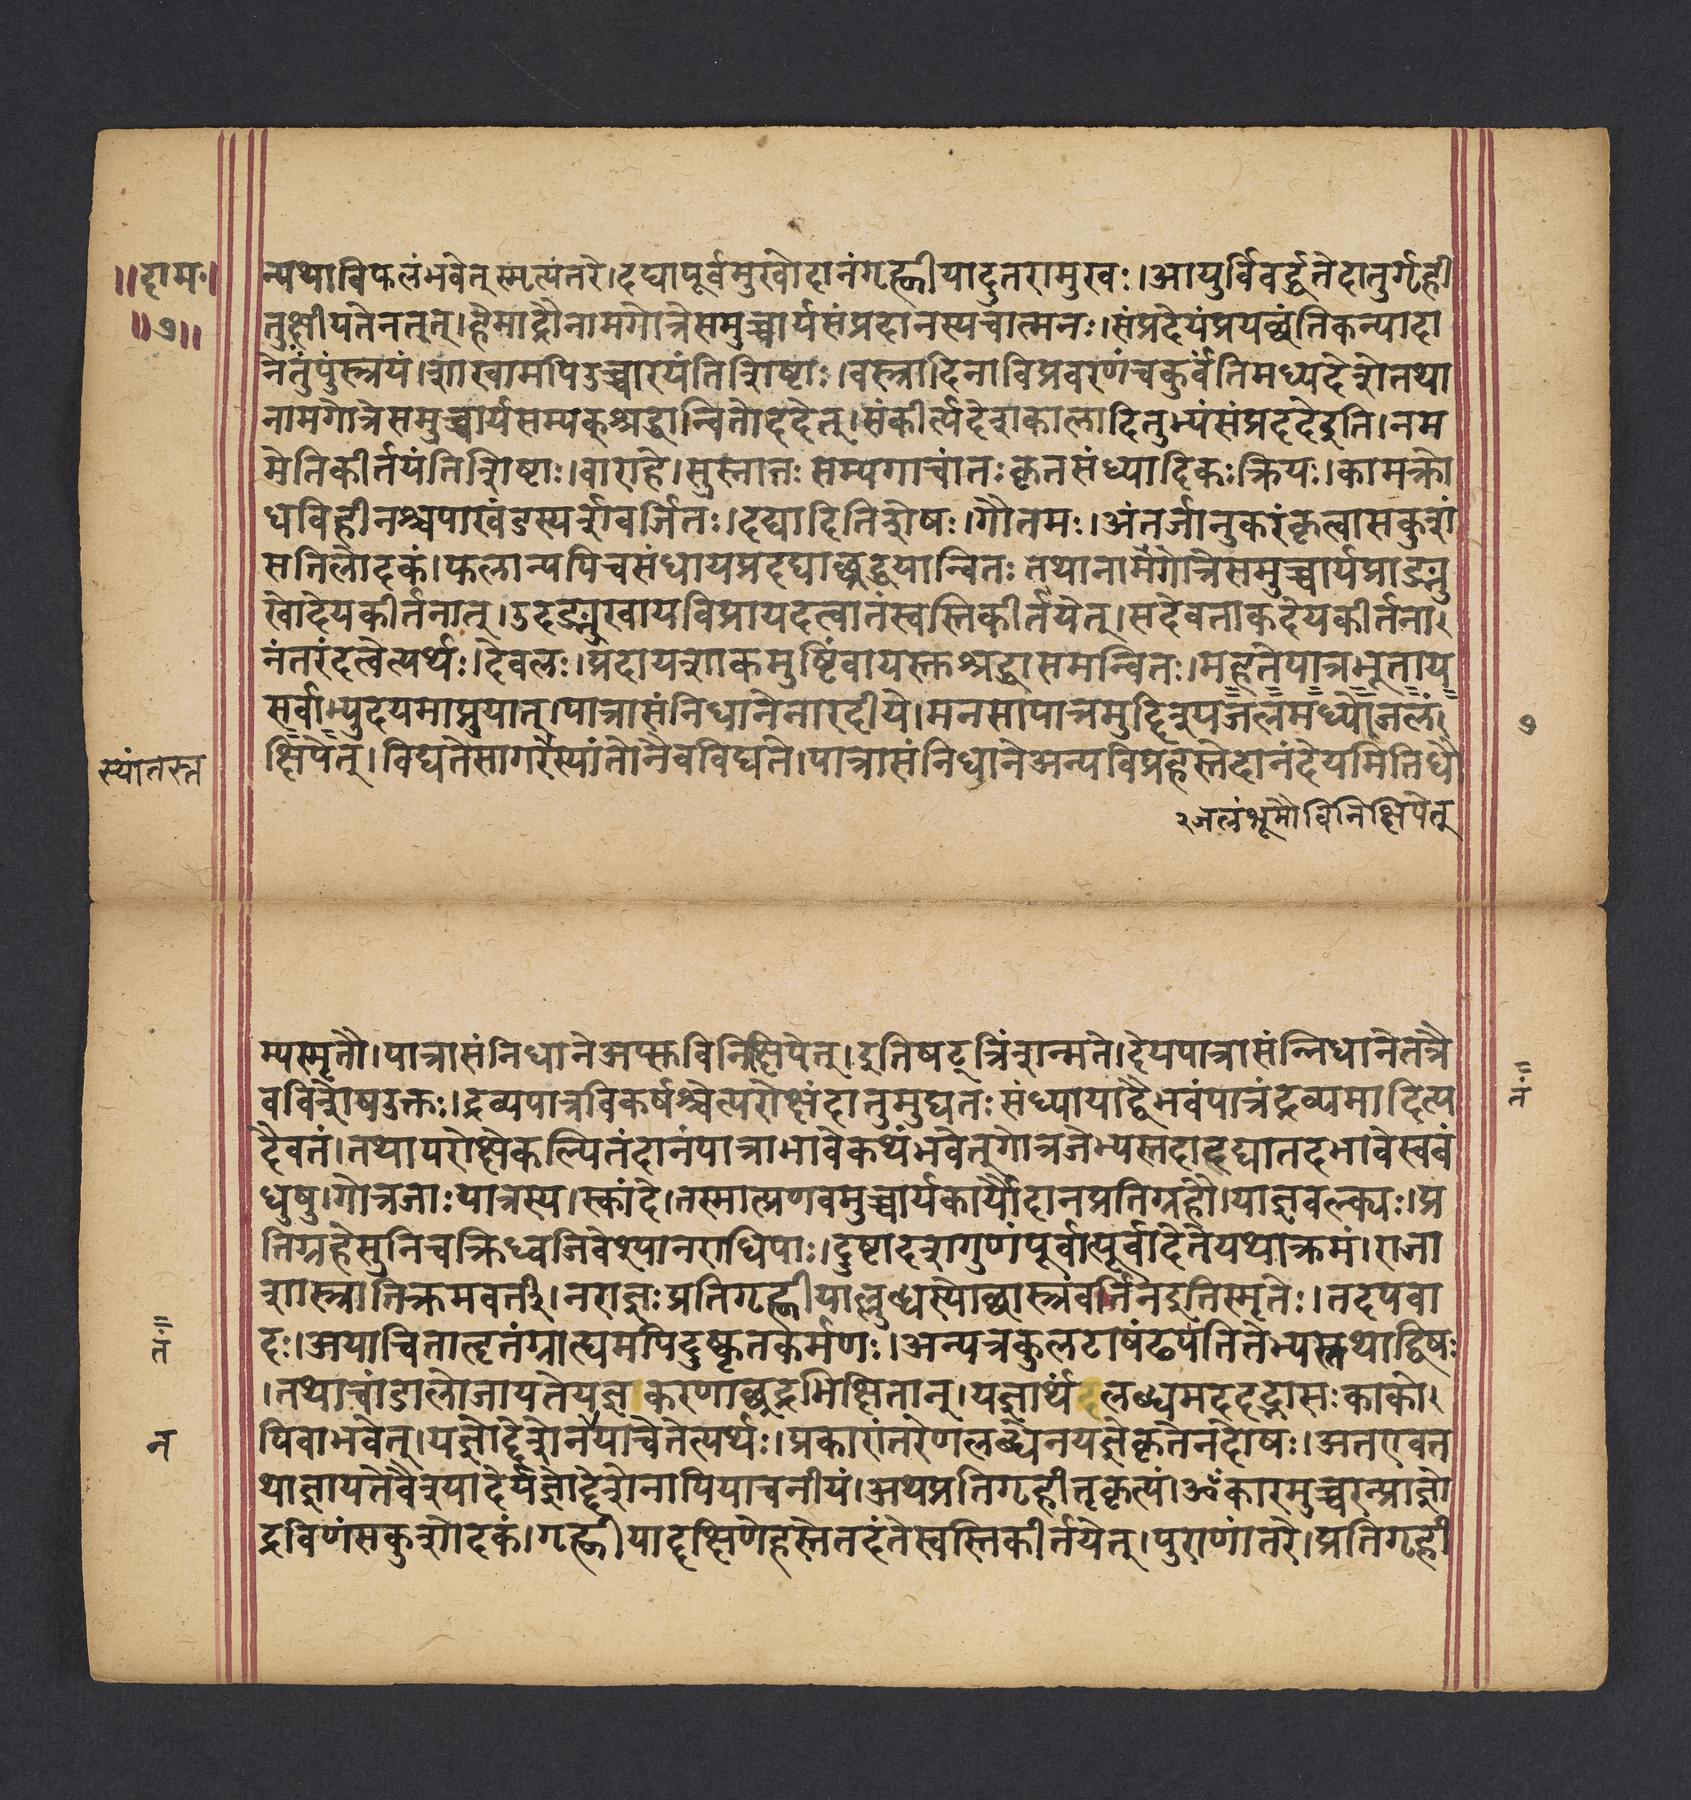 ॥दामः।
॥७॥
न्यथाविफलंभवेत् स्मृत्यंतरे।दद्यापूर्वमुखोदानंगृह्णीयादुतरामुखः।आयुर्विवर्द्धतेदातुर्गृही
तुक्षीयतेनतत्।हैमाद्रौनामगोत्रेसमुच्चार्यसंप्रदानस्यचात्मनः।संप्रदेयंप्रयछंतिकन्यादा
नेतुंपुंस्त्रयं।शाखामपिउच्चारयंतिशिष्टाः।वस्त्रादिनाविप्रवरणंचकुर्वंतिमध्यदेशेतथा
नामगोत्रेसमुच्चार्यसम्यक्श्रद्धान्वितोददेत्।संकीर्त्यदेशकालादितुभ्यंसंप्रददेइति।नम
मेतिकीर्तयंतिशिष्टाः।वाराहे।सुस्नातः सम्यगाचांतः कृतसंध्यादिकः क्रियः।कामक्रो
धविहीनश्चपाखंडस्पर्शवर्जितः।दद्यादितिशेषः।गौतमः।अंतर्जानुकरंकृत्वासकुशं
सतिलोदकं।फलान्यपिचसंधायप्रदद्याछ्रद्धयान्वितः तथानामगोत्रेसमुच्चार्यप्राङ्मु
खोदेयकीर्तनात्।उदङ्मुखायविप्रायदत्वातंस्वस्तिकीर्तयेत्।सदेवताकदेयकीर्तना
नंतरंदत्वेत्यर्थः।देवलः।प्रदायशाकमुष्टिंवायस्तश्रद्धासमन्वितः।महतेपात्रभूताय
सर्वाभ्युदयमाप्नुयात्।पात्रासंनिधानेनारदीये।मनसापात्रमुद्दिश्यजलमध्येजलं
क्षिपेत्।विद्यतेसागरस्यांतोनैवविद्यते।पात्रासंनिधानेअन्यविप्रहस्तेदानंदेयमितिधौ
स्यांतस्त
७
२जलंभूमौविनिक्षिपेत्
म्यस्मृतौ।पात्रासंनिधानेअप्स्तविनिक्षिपेत्।इतिषट्त्रिंशन्मते।देयपात्रासंन्निधानेतत्रै
वविशेषउक्तः।द्रव्यपात्रविकर्षश्चेत्परोक्षंदातुमुद्यतः संध्यायाद्दैभवंपात्रंद्रव्यमादित्य
दैवतं।तथापरोक्षेकल्पितंदानंपात्राभावेकथंभवेत्गोत्रजेभ्यस्तदादद्यातदभावेस्वबं
धुषु।गोत्रजाः पात्रस्य।स्कांदे।तस्मात्प्रणवमुच्चार्यकार्यौदानप्रतिग्रहौ।याज्ञवल्क्यः।प्र
तिग्रहेसुनिचक्रिध्वजिवेश्यानराधिपाः।दुष्टादशगुणंपूर्वात्पूर्वादेतेयथाक्रमं।राजा
शास्त्रातिक्रमवर्ती।नराज्ञः प्रतिगृह्णीयाल्लुब्धस्योछास्त्रवर्तिनइतिस्मृतेः।तदपवा
दः।अयाचितात्दृतंग्राह्यमपिदुष्कृतकर्मणः।अन्यत्रकुलटाषंढपतितेभ्यस्तथाद्विषः
।तथाचांडालोजायतेयज्ञकरणाछूद्रभिक्षितात्।यज्ञार्थंलब्धमददद्भासः काको
पिवाभवेत्।यज्ञोद्देशेनयाचेतेत्यर्थः।प्रकारांतरेणलब्धेनयज्ञेकृतेनदोषः।अतएवत
थाज्ञायतेवैश्यादेर्यज्ञोद्देशेनापियाचनीयं।अथप्रतिगृहीतृकृत्यं।ॐकारमुच्चरन्प्राज्ञो
द्रविणंसकुशोदकं।गृह्णीयाद्दक्षिणेहस्तेतदंतेस्वस्तिकीर्तयेत्।पुराणांतरे।प्रतिगृही
तं
तं
न